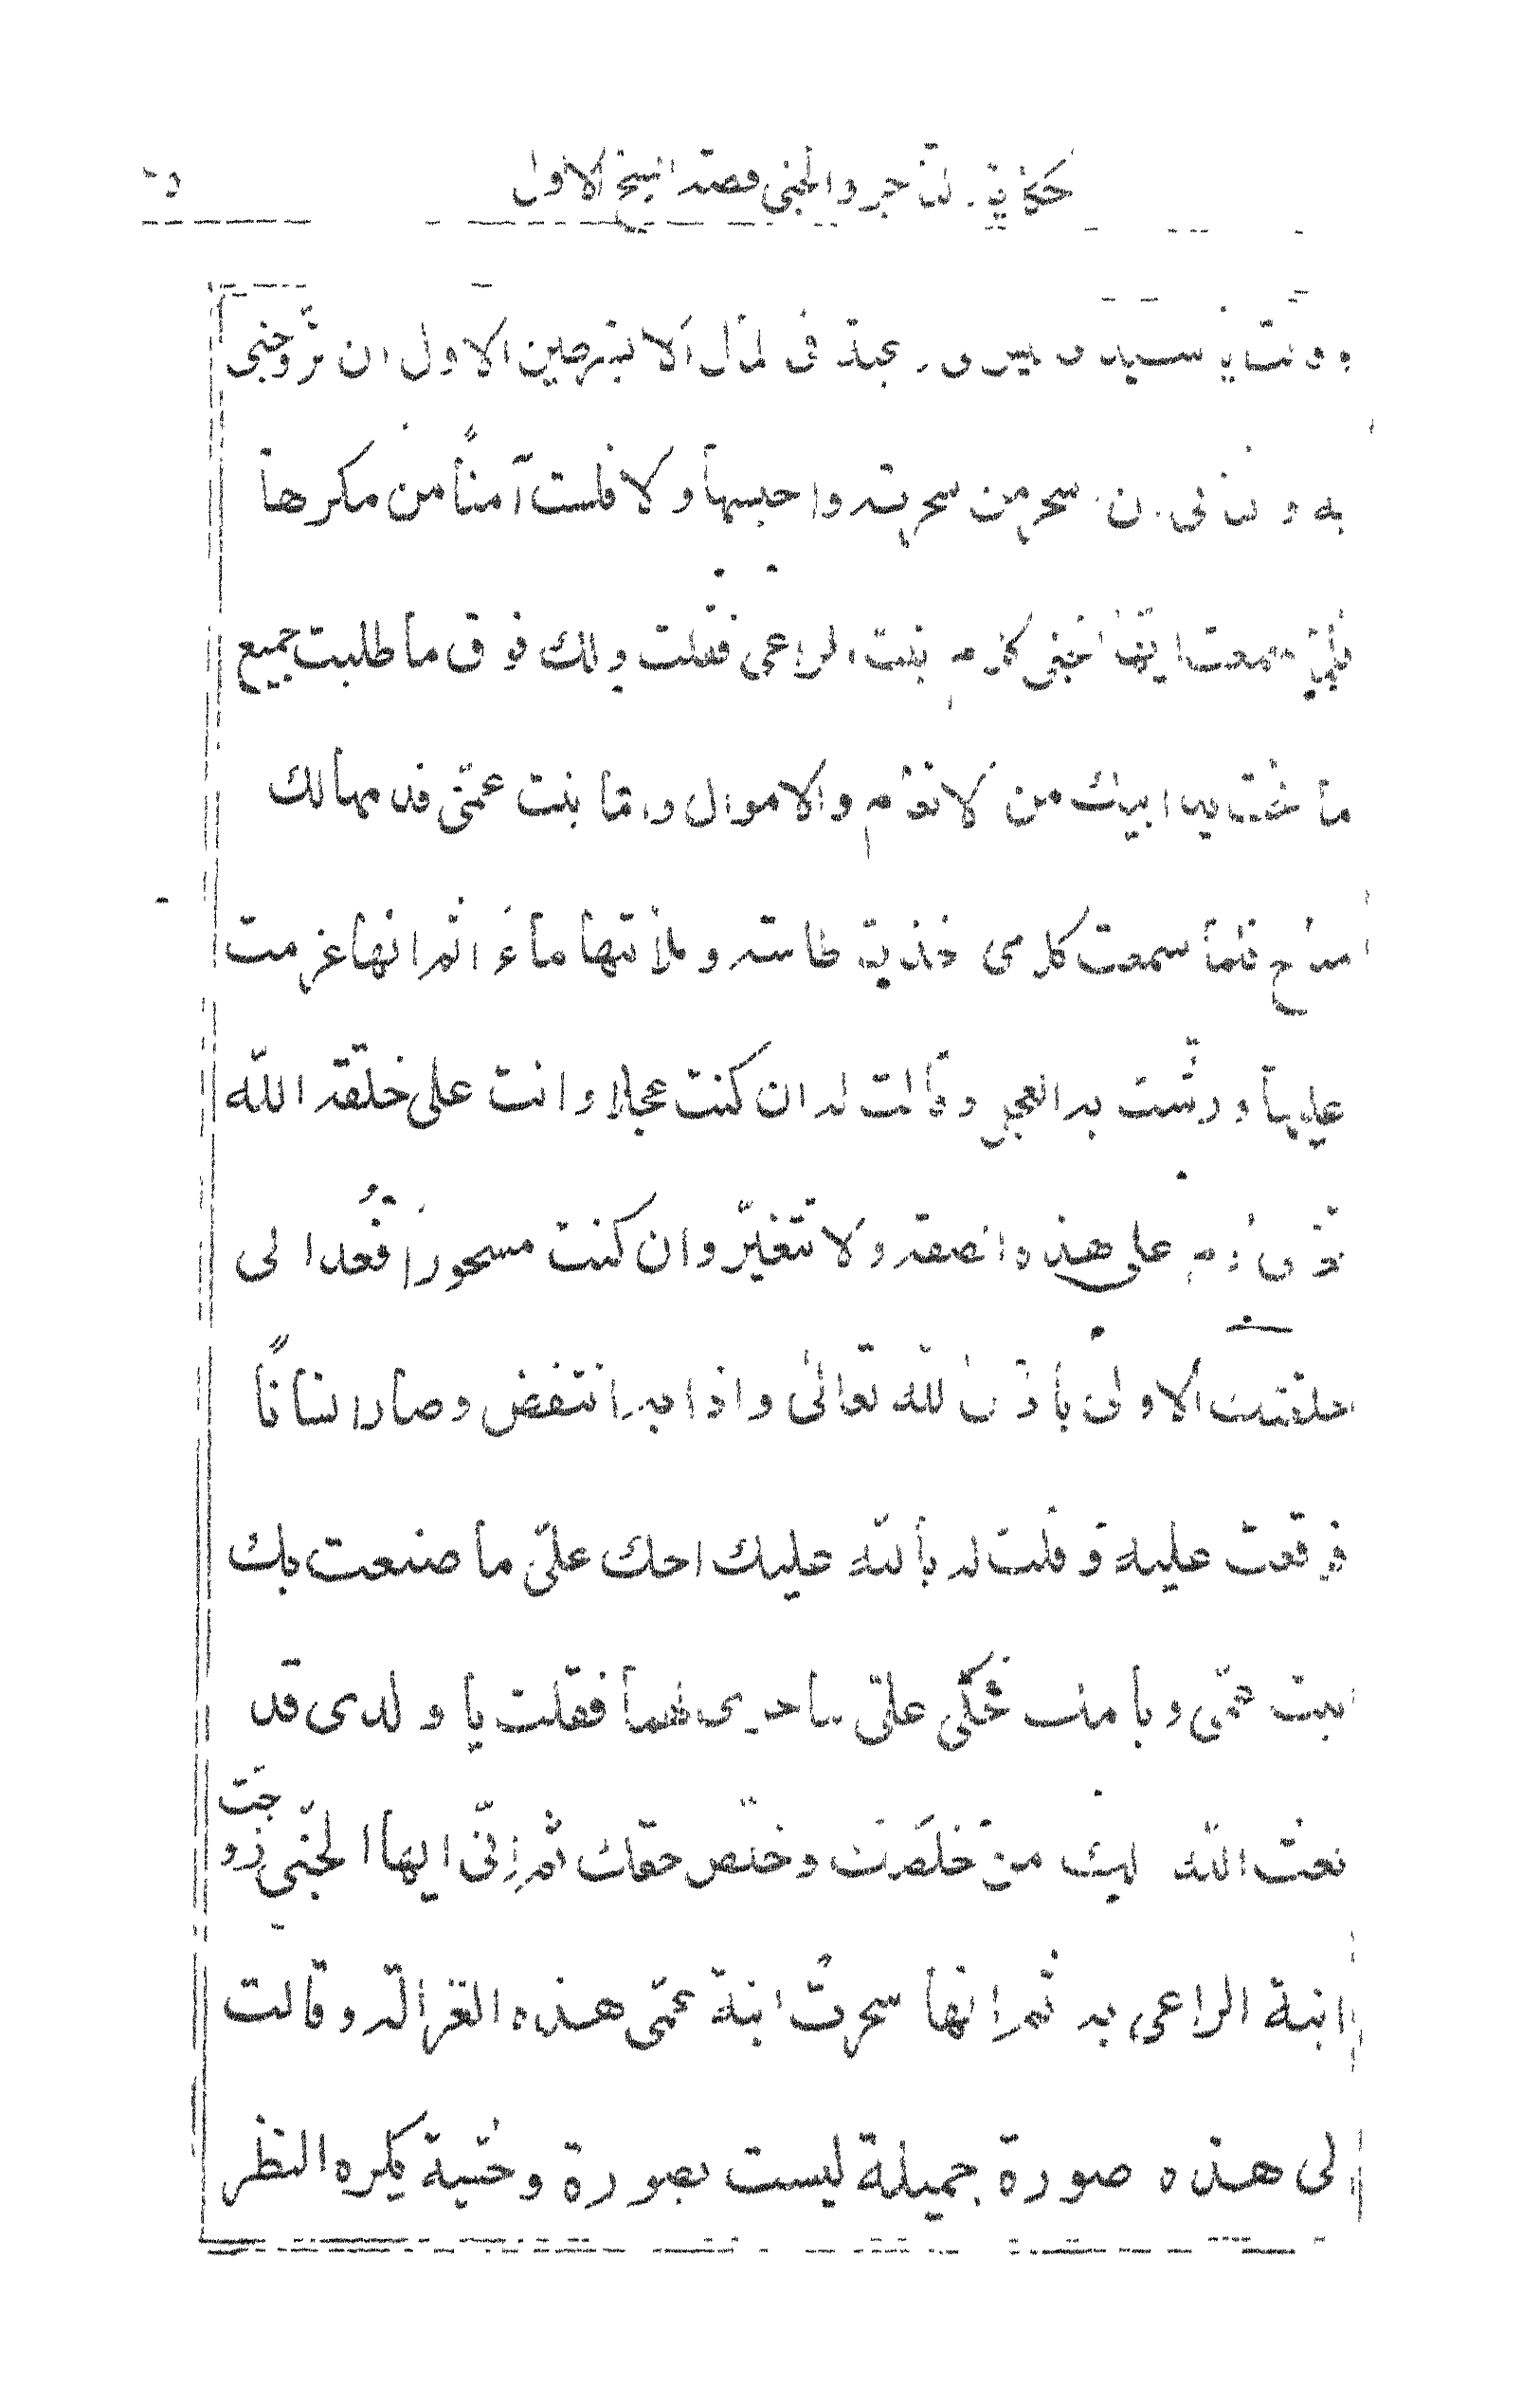 حكاية التاجر والجنى قصة الشيخ الاول
وقالت يا سيدى ليس لى رغبة فى المال الا بشرطين الاول ان تزوجنى
به والثانى ان اسحر من سحرته واحبسها والا فلست آمناً من مكرها
فلما سمعت ايها الجنى كلام بنت الراعى فقلت ولك فوق ما طلبت جميع
ما تحت يد ابيك من الانعام والاموال واما بنت عمّى فدمها لك
مباح فلما سمعت كلامى اخذت طاسة وملأتها ماءً ثم انها عزمت
عليها ورشت به العجل وقالت له ان كنت عجلا وانت على خلقة اللّه
على هذه الصفة ولا تتغيّر وان كنت مسحوراً فعُد الى
خلقتك الاولى باذن اللّه تعالى واذا به انتفض وصار انساناً
فوقعت عليه وقلت له باللّه عليك احك علىّ ما صنعت بك
بنت عمّى وبامك فحكى علىّ ما جرى لهما فقلت يا ولدى قد
اللّه لك من خلصك وخلّص حقك ثم إنّى ايها الجنّى زوجت
ابنة الراعى به ثم انها سحرت ابنة عمّى هذه الغزالة وقالت
لى هذه صورة جميلة ليست بصورة وحشية يكره النظر